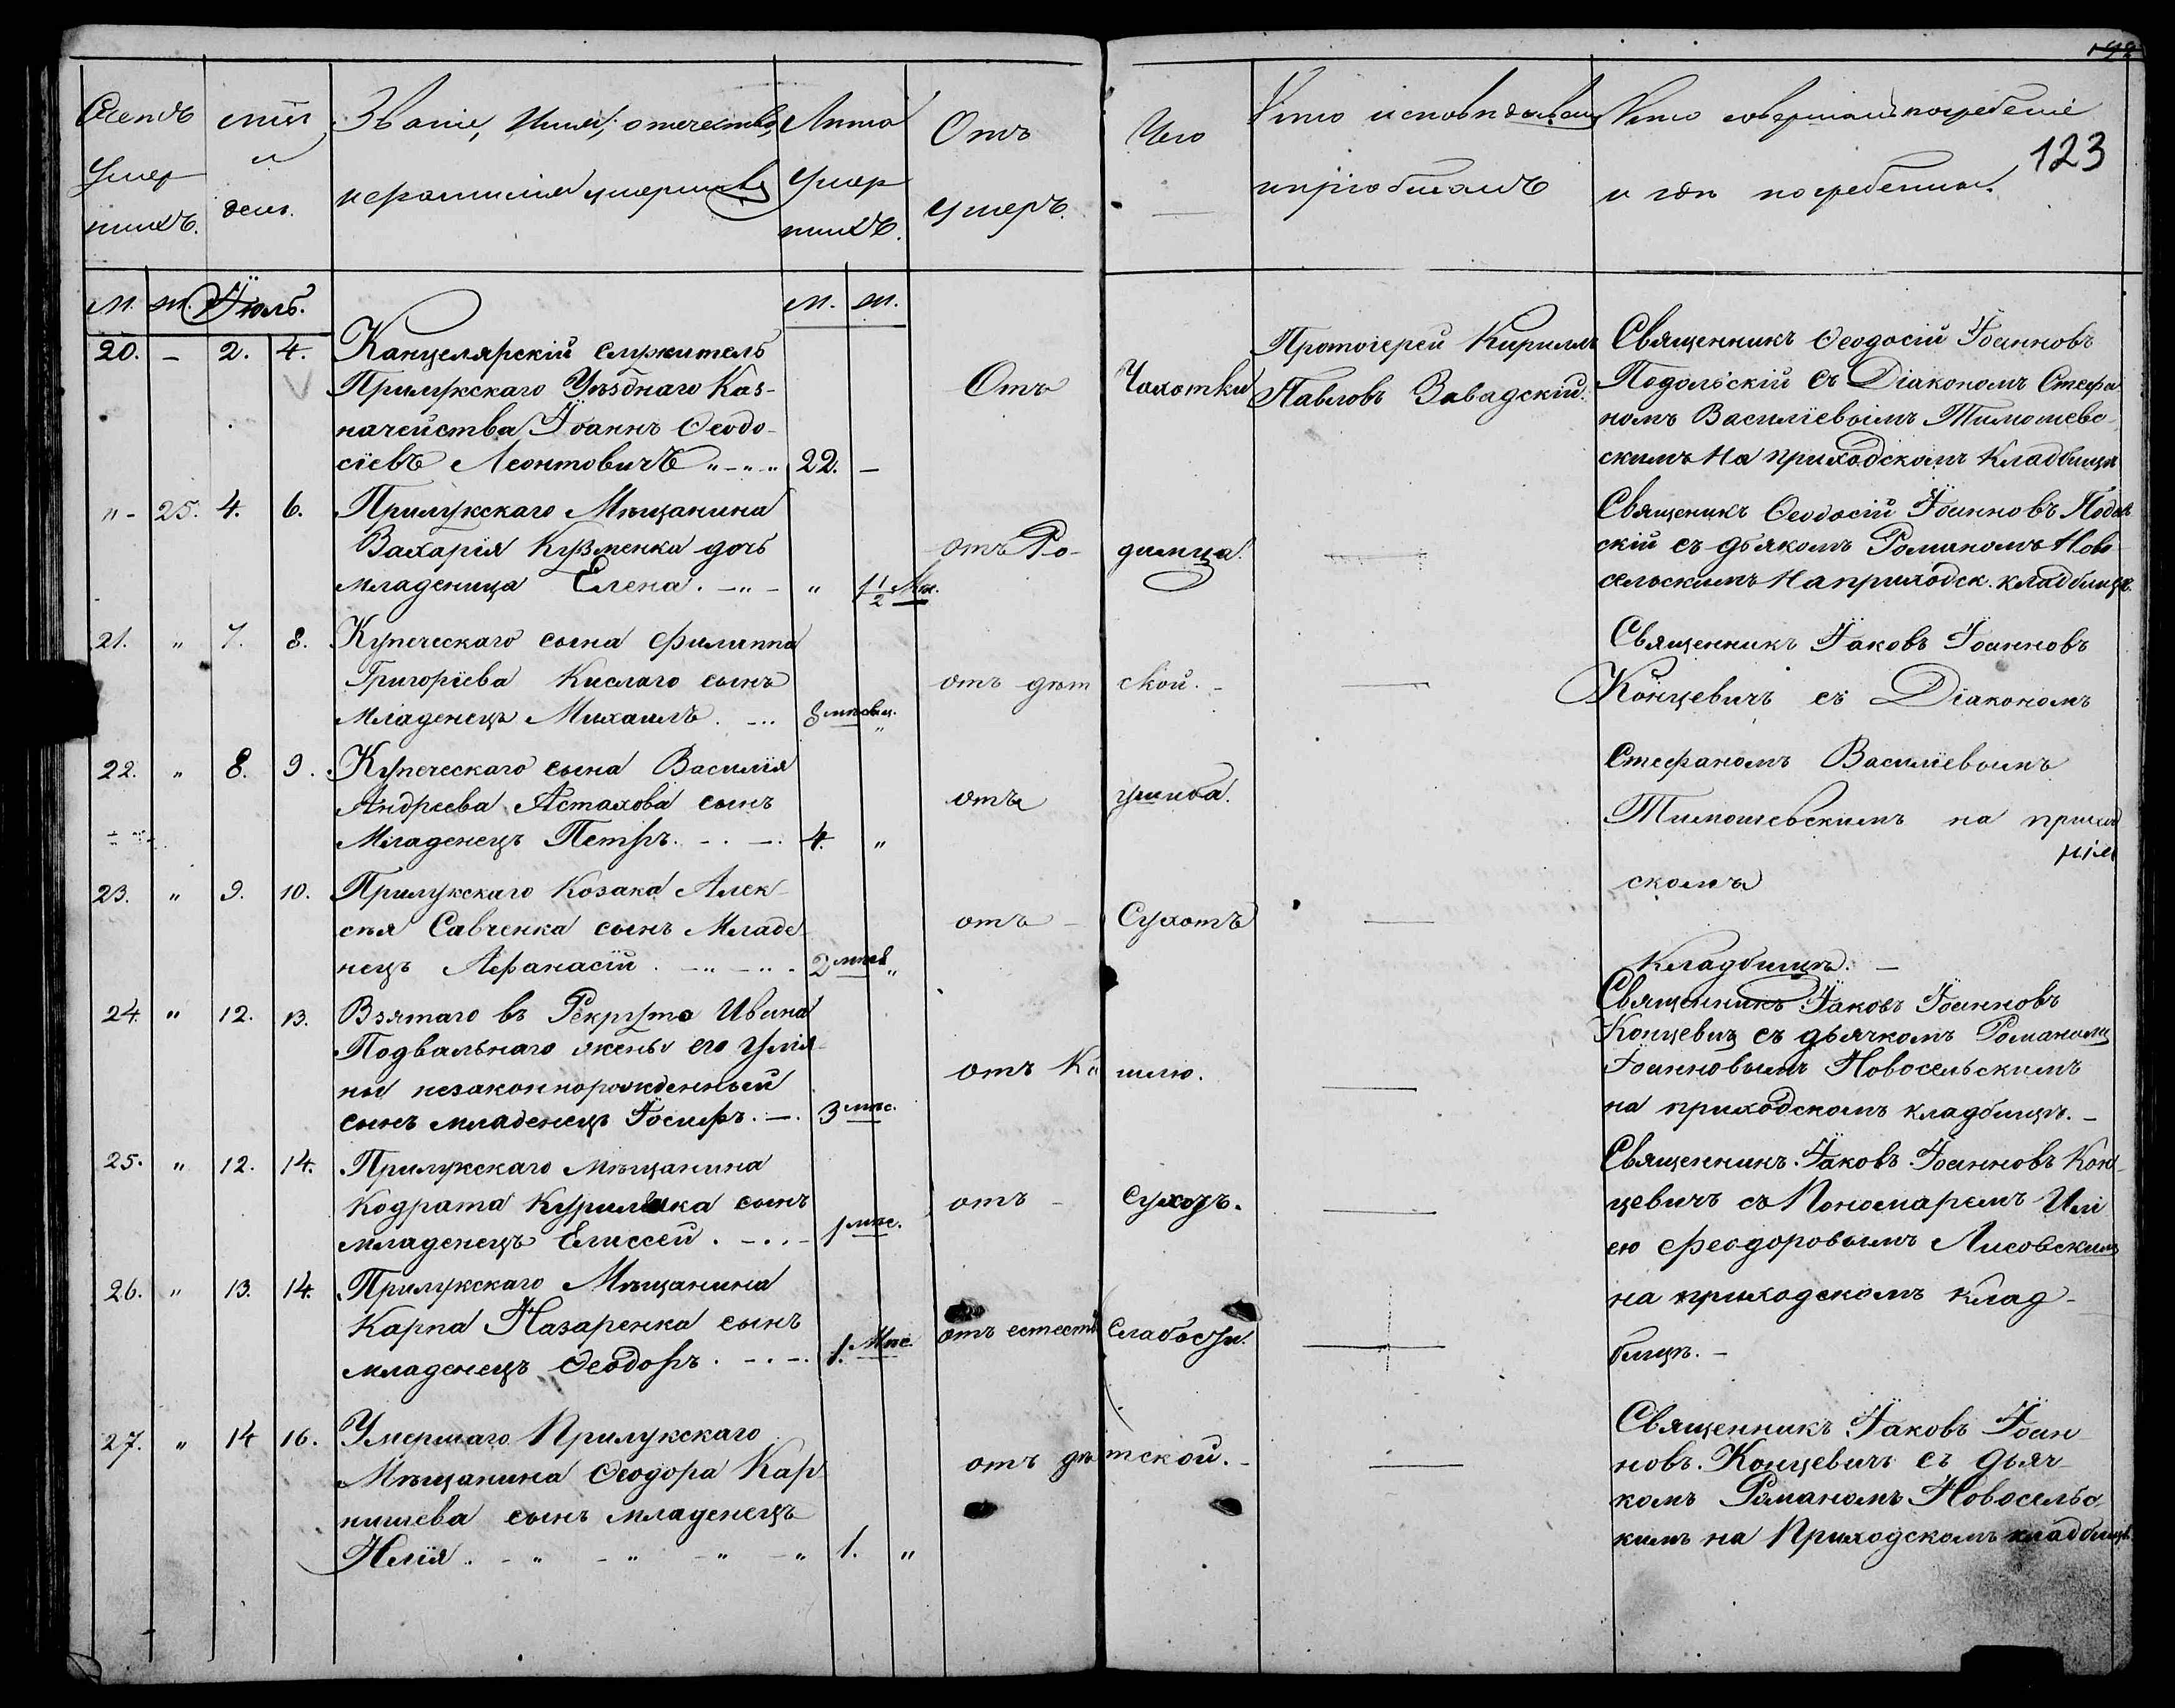 192
123
Счетъ умершихъ.
мѣсяц и день.
Званіе, Имя, отечество, и фамилія умершихъ
Лѣта умершихъ.
Отъ Чего умеръ.
Кто исповѣдывалъ и пріобщалъ
Кто совершалъ погребеніе и гдѣ погребены.
М. ж. Іюль. М. ж.
20. - 2. 4. Канцелярскій служитель
Прилукскаго Уѣзднаго Каз-
начейства Іоаннъ Ѳеодо-
сіевъ Леонтовичъ 22. -
Отъ Чахотки
Протоіерей Кириллъ
Павловъ Завадскій.
Священникъ Ѳеодосій Іоанновъ
Подольскій съ Діакономъ Стефа
номъ Василіевымъ Тимошев-
скимъ На приходскомъ Кладбищѣ
" - 25. 4. 6. Прилукскаго Мѣщанина
Захарія Кузменка дочь
младеница Елена. " 1 1/2 Мѣс.
отъ Ро- димца.
Священикъ Ѳеодосій Іоанновъ Подоль
скій съ дьякомъ Романомъ Ново-
сельскимъ На приходск. кладбищѣ.
21. " 7. 8. Купеческаго сына Филиппа
Григоріева Кислаго сынъ
Младенецъ Михаилъ. 8 мѣсяц. "
отъ дѣт ской. -
Священникъ Іаковъ Іоанновъ
Концевичъ съ Діакономъ
22. " 8. 9. Купеческаго сына Василія
Андреева Астахова сынъ
Младенецъ Петръ. 4. "
отъ ушиба.
Стефаномъ Василіевымъ
Тимошевскимъ на приход
скомъ
Кладбищѣ. -
23. " 9. 10. Прилукскаго Козака Алек-
сѣя Савченка сынъ Младе-
нецъ Аѳанасій. 2 мѣс. "
отъ - Сухотъ
24. " 12. 13. Взятаго въ Рекруты Ивана
Подвальнаго жены его Улія-
ны незаконнорожденный
сынъ младенецъ Іосифъ. - 3 мѣс.
отъ Ка шлю.
Священникъ Іаковъ Іоанновъ
Концевич съ дьячкомъ Романомъ
Іоанновымъ Новосельскимъ
на приходскомъ кладбищѣ. -
25. " 12. 14. Прилукскаго мѣщанина
Кодрата сынъ
младенецъ Елиссей. 1 мѣс.
отъ - сухотъ.
Священникъ Іаковъ Іоанновъ Кон-
цевичъ съ Пономаремъ Илі
ею Феодоровымъ Лисовскимъ
26. " 13. 14. Прилукскаго Мѣщанина
Карпа Назаренка сынъ
младенецъ Ѳеодоръ. 1. Мѣс.
отъ естеств слабости.
на приходскомъ клад-
бищѣ. -
27. " 14 16. Умершаго Прилукскаго
Мѣщанина Ѳеодора Кар
пишева сынъ младенецъ
Илія. 1. "
отъ дѣ тской. -
Священникъ Іаковъ Іоан-
новъ Концевичъ съ дьяч-
комъ Романомъ Новосельс-
кимъ на Приходскомъ кладбищѣ